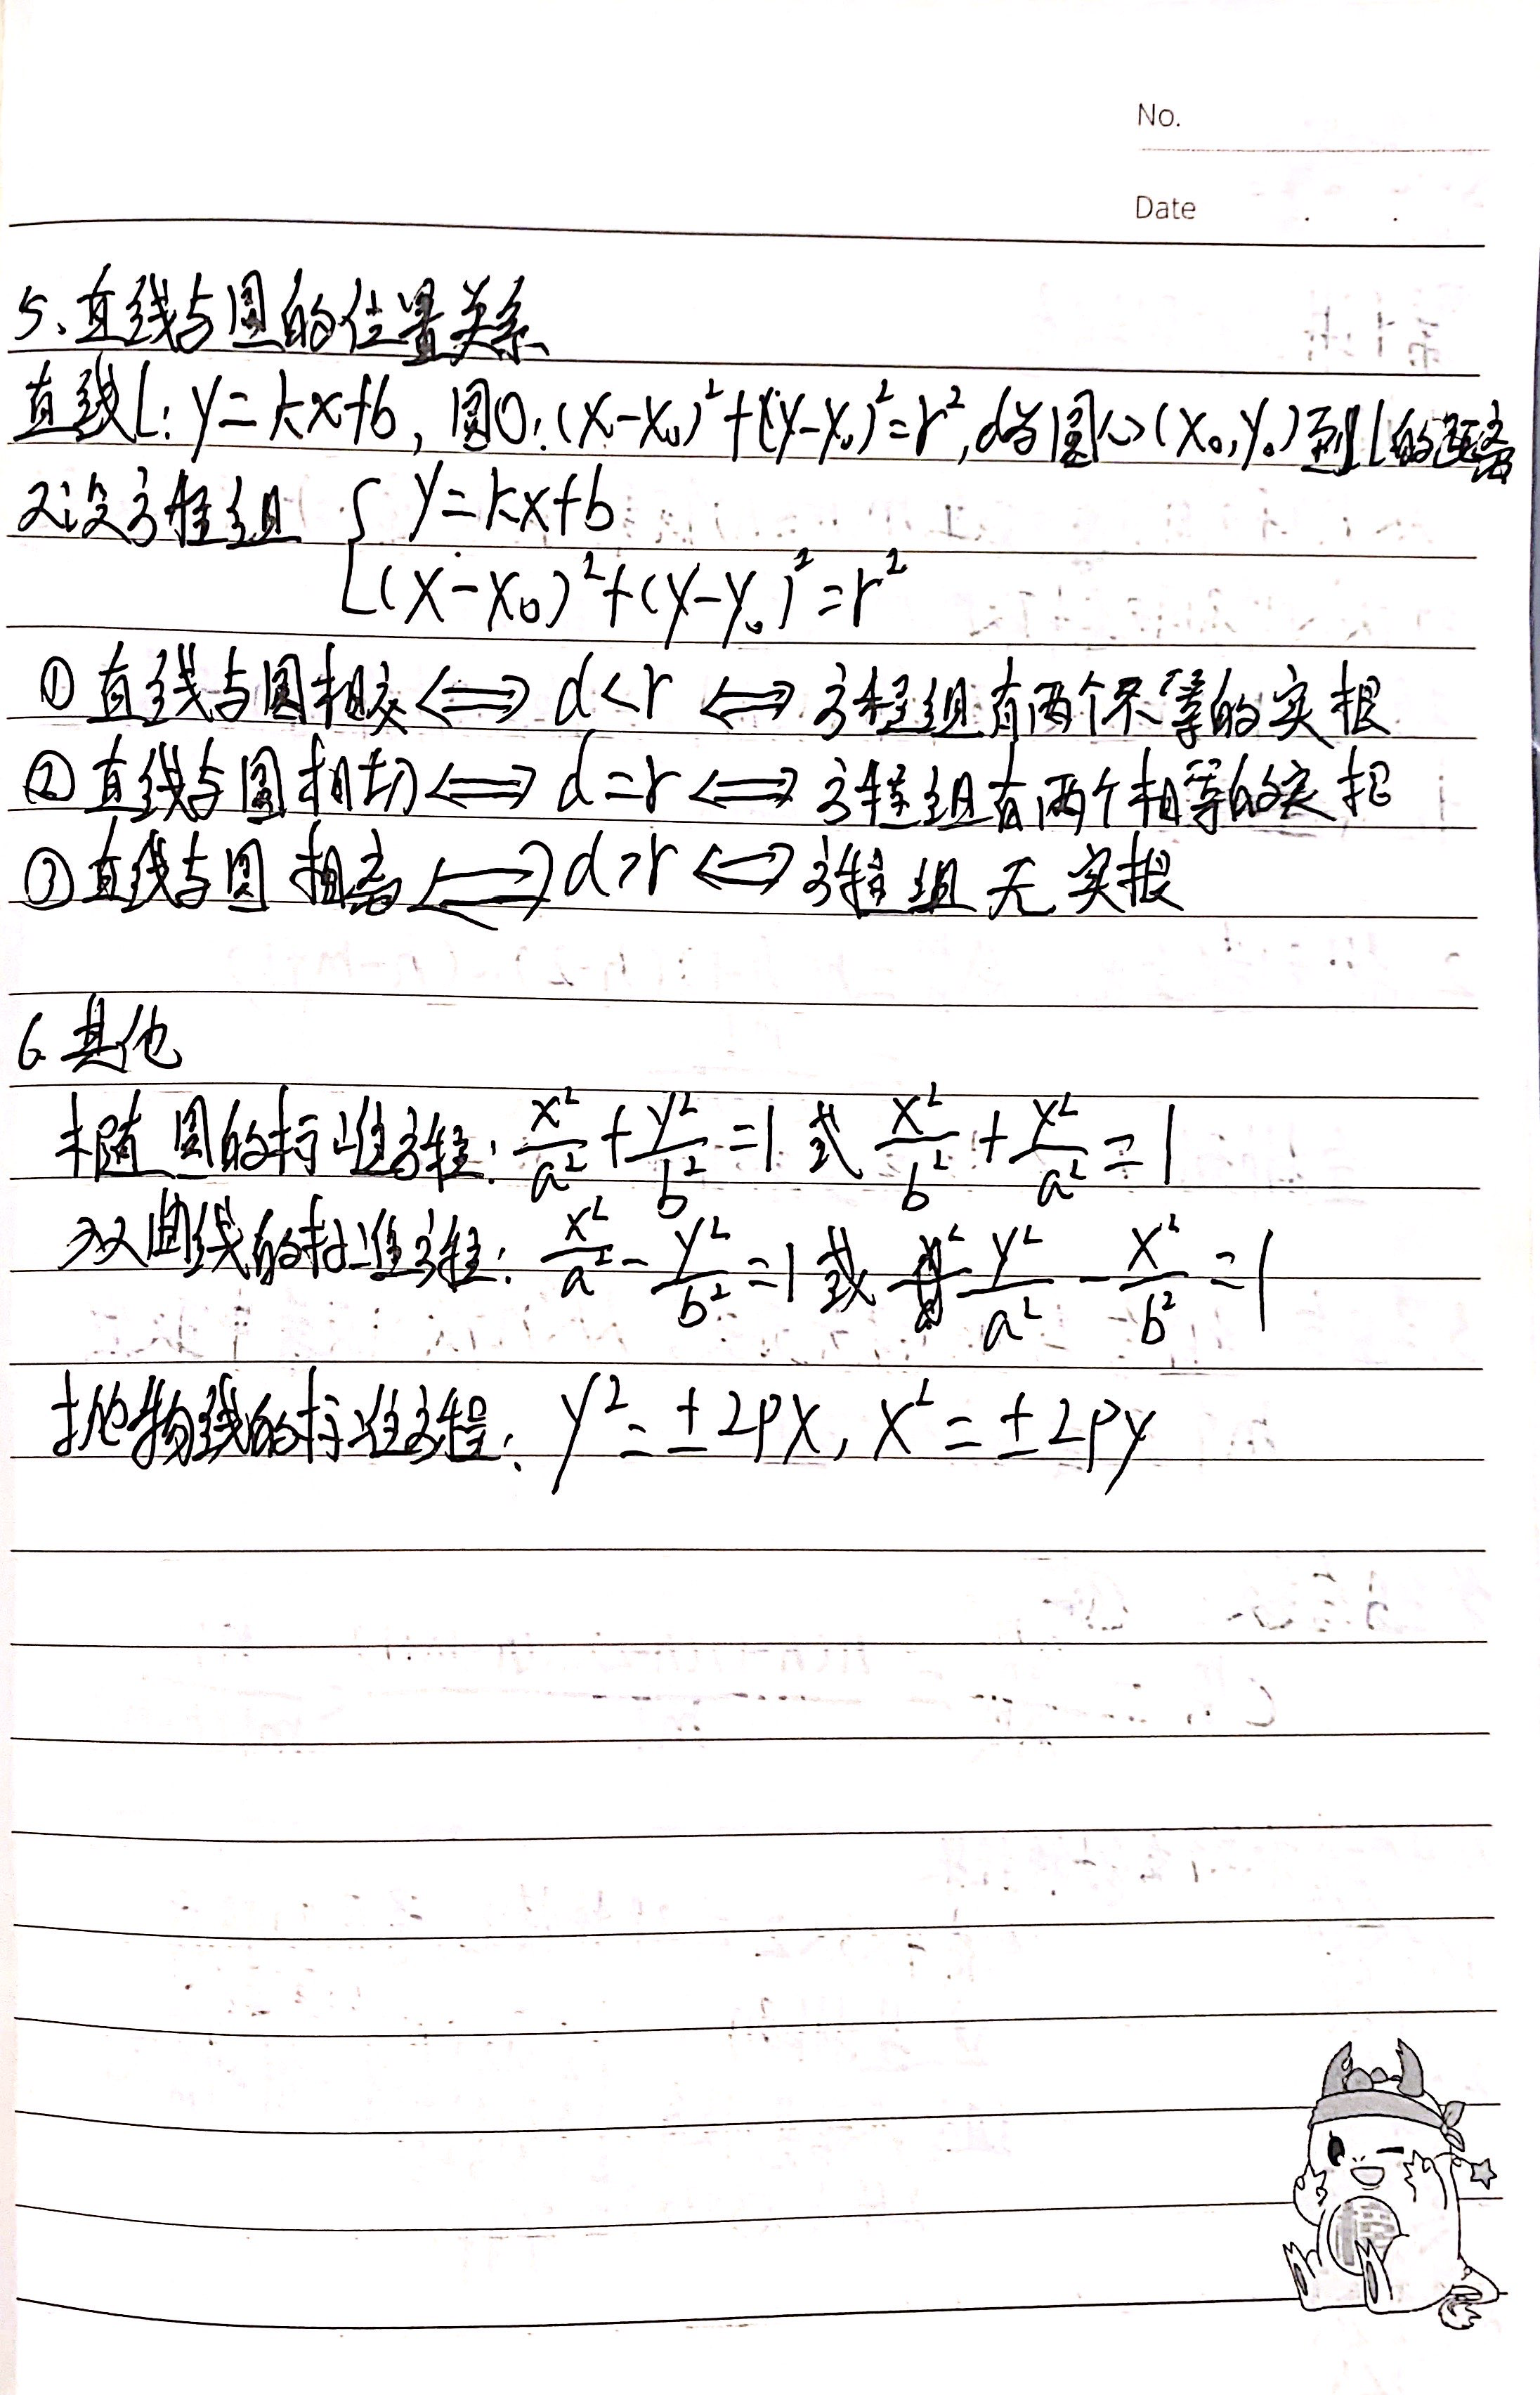 No.
Date
5、直线与圆的位置关系
直线l: y=kx+b, 圆O: (x-x₀)²+(y-y₀)²=r², d为圆心(x₀,y₀)到l的距离
又设方程组 { y=kx+b
(x-x₀)²+(y-y₀)²=r²
① 直线与圆相交 ⟺ d<r ⟺ 方程组有两个不等的实根
② 直线与圆相切 ⟺ d=r ⟺ 方程组有两个相等的实根
③ 直线与圆相离 ⟺ d>r ⟺ 方程组无实根
6 其他
椭圆的标准方程: x²/a² + y²/b² = 1 或 x²/b² + y²/a² = 1
双曲线的标准方程: x²/a² - y²/b² = 1 或 y²/a² - x²/b² = 1
抛物线的标准方程: y²=±2px, x²=±2py